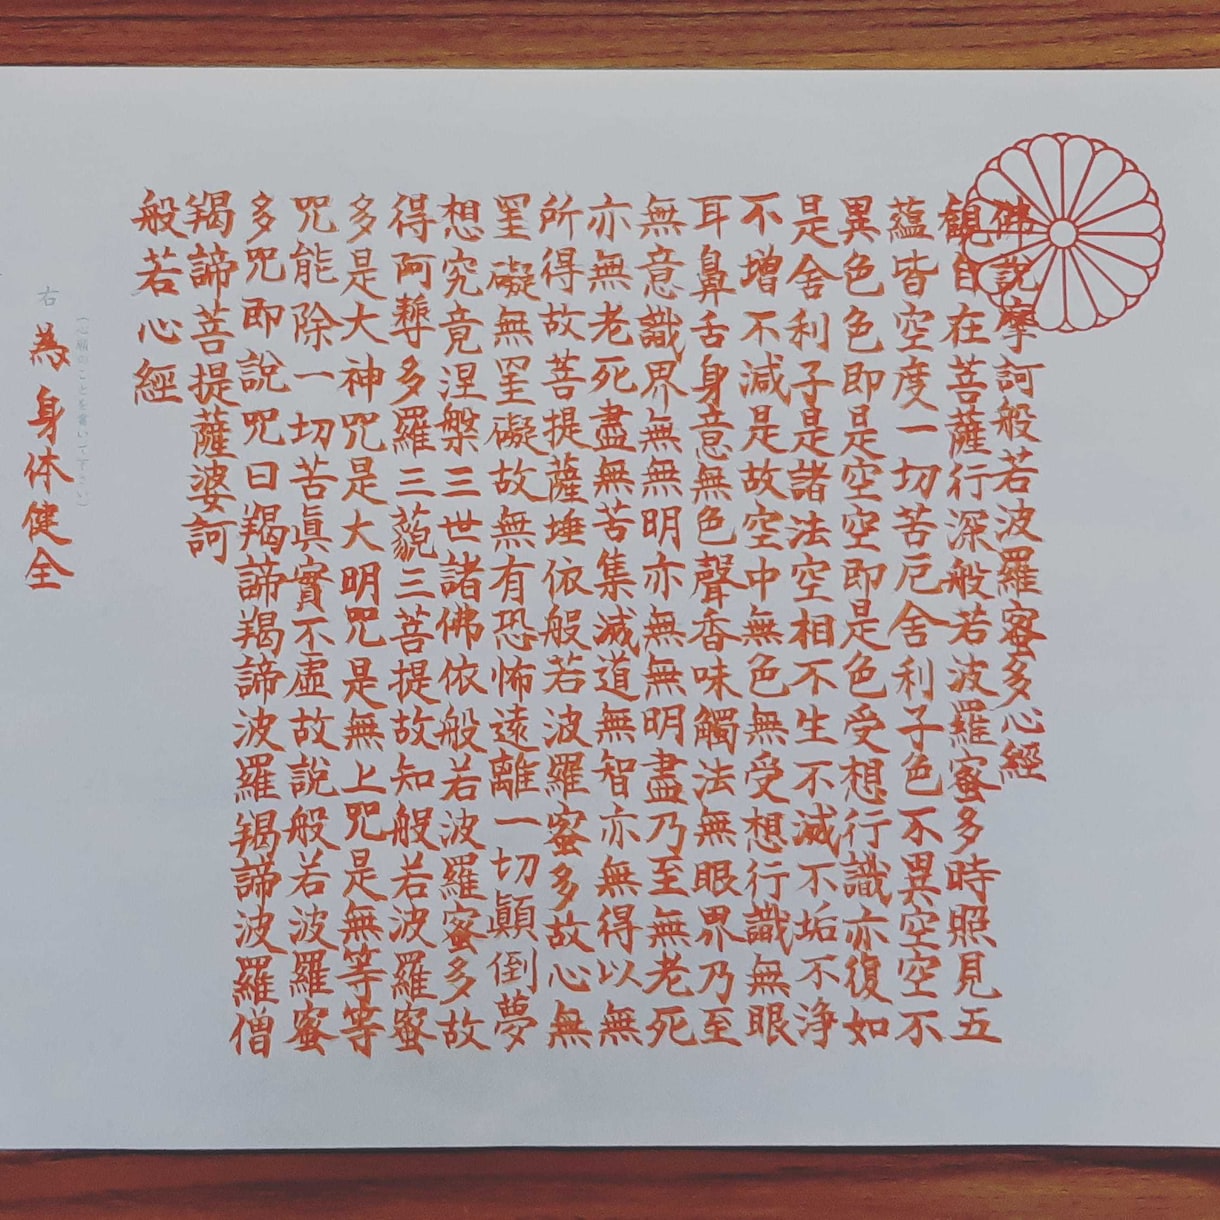 佛說摩訶般若波羅蜜多心經
觀自在菩薩行深般若波羅蜜多時照見五
蘊皆空度一切苦厄舍利子色不異空空不
異色色即是空空即是色受想行識亦復如
是舍利子是諸法空相不生不滅不垢不浄
不增不減是故空中無色無受想行識無眼
耳鼻舌身意無色聲香味觸法無眼界乃至
無意識界無無明亦無無明盡乃至無老死
亦無老死盡無苦集滅道無智亦無得以無
所得故菩提薩埵依般若波羅蜜多故心無
罣礙無罣礙故無有恐怖遠離一切顚倒夢
想究竟涅槃三世諸佛依般若波羅蜜多故
得阿耨多羅三藐三菩提故知般若波羅蜜
多是大神咒是大明咒是無上咒是無等等
咒能除一切苦眞實不虛故說般若波羅蜜
多咒即說咒曰羯諦羯諦波羅羯諦波羅僧
羯諦菩提薩婆訶
般若心經
(心願のことを書いて下さい)
右為身体健全